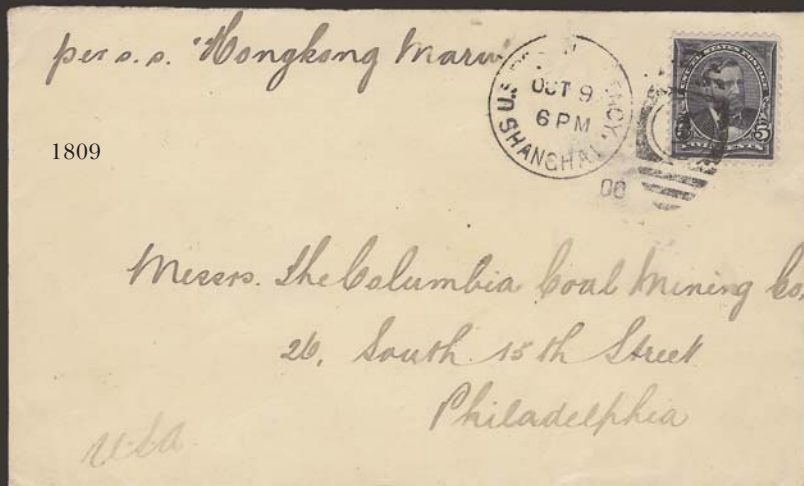 per s.s. "Hongkong Maru"
OCT 9
6 PM
SHANGHAI
00
5
1809
Messrs. The Columbia Coal Mining Co,
26, South 15th Street
Philadelphia
USA